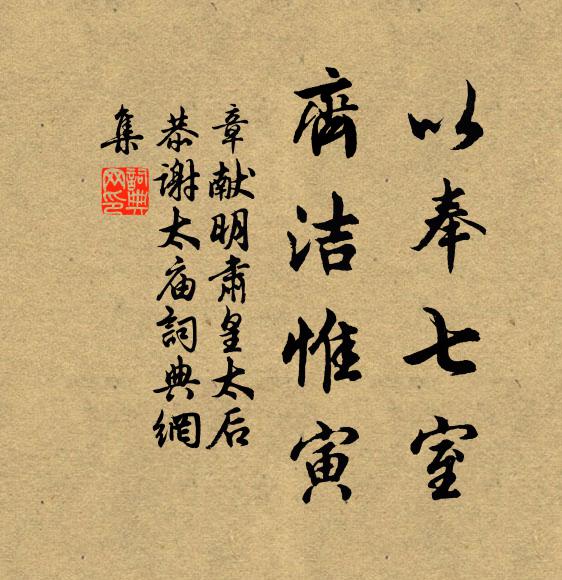 以奉七室
齊洁惟寅
章献明肅皇太后
恭谢太庙詞典網
集
詞典
网印